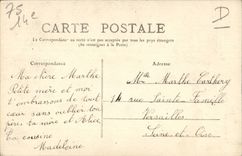 75
14e
D
CARTE POSTALE
La Correspondance au recto n'est pas acceptée par tous les pays étrangers
(Se renseigner à la Poste)
Correspondance
Adresse
Ma chère Marthe
Petite mère et moi
t'embrassons de tout
cœur sans oublier ton
père ta mère et Alice
Ta cousine
Madeleine
Mlle Marthe
14 rue Sainte-Famille
Versailles
Seine-et-Oise